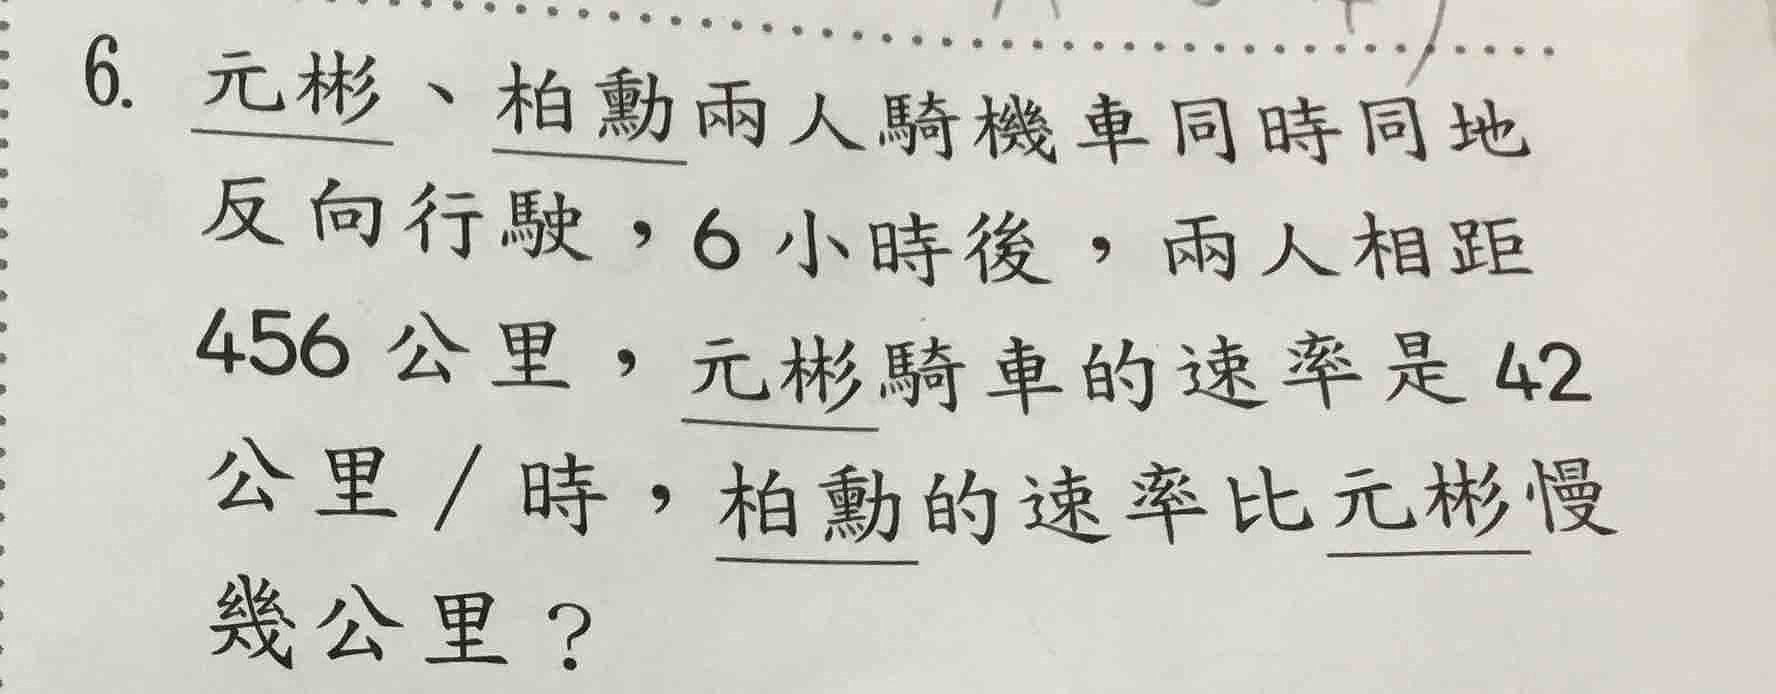 6. 元彬、柏勳兩人騎機車同時同地
反向行駛，6小時後，兩人相距
456公里，元彬騎車的速率是42
公里／時，柏勳的速率比元彬慢
幾公里？